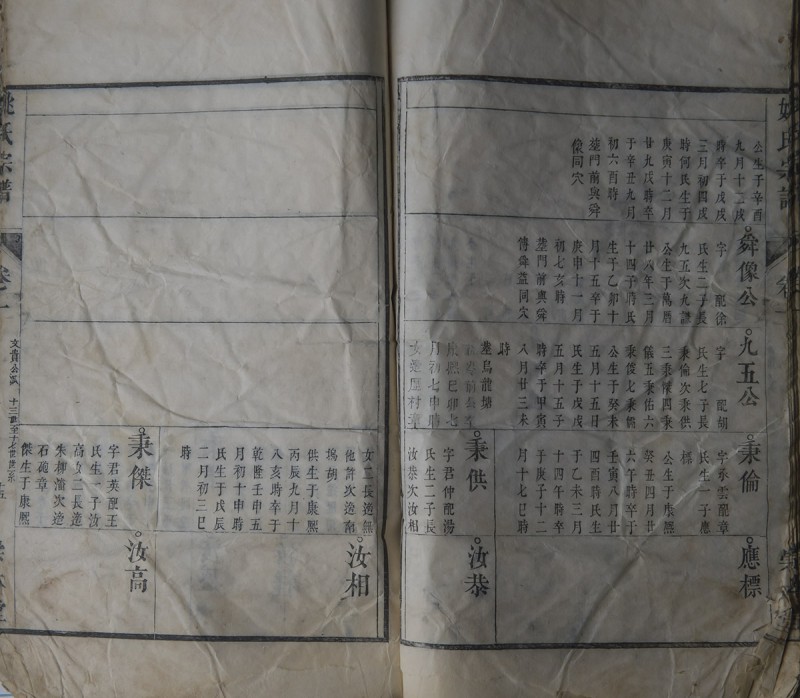 姚氏宗譜
公生于辛酉
九月十二戌
時卒于戊戌
三月初四戌
時何氏生于
庚寅十二月
廿九戌時卒
于辛丑九月
初六酉時
塟門前與舜
像同穴
舜像公
字 配徐
氏生二子長
九五次九謨
公生于萬曆
廿八年三月
十四子時氏
生于乙卯十
月十五卒于
庚申十一月
初七亥時
塟門前與舜
傳舜益同穴
九五公
字 配胡
氏生七子長
秉倫次秉供
三秉傑四秉
儀五秉佑六
秉俊七秉
公生于癸未
五月十五日
氏生于戊戌
五月十五子
時卒于甲寅
八月廿三未
時
塟烏龍塘
秉倫
字承雲配章
氏生一子應
標
公生于康熙
癸丑四月廿
六午時卒于
壬寅八月廿
四酉時氏生
于乙未三月
十四午時卒
于庚子十二
月十七巳時
應標
秉供
字君仲配湯
氏生二子長
汝恭次汝相
汝恭
姚氏宗譜
卷二
文貴公派 十三世至十七世世系
女二長適無
他許次適南
塢胡
供生于康熙
丙辰九月十
八亥時卒于
乾隆壬申五
月初十申時
氏生于戊辰
二月初三巳
時
汝相
秉傑
字君英配王
氏生一子汝
高女二長適
朱柳濱次適
石硊章
傑生于康熙
汝高